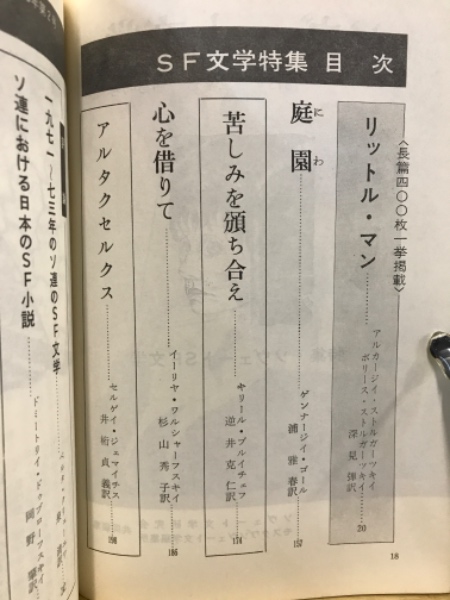 SF文学特集 目次
<長篇四〇〇枚一挙掲載>
リットル・マン
アルカージイ・ストルガーツキイ
ボリース・ストルガーツキイ
深見弾訳
20
庭園
にわ
ゲンナージイ・ゴール
浦雅春訳
157
苦しみを頒ち合え
キリール・ブルイチェフ
逆井克仁訳
174
心を借りて
イーリヤ・ワルシャーフスキイ
杉山秀子訳
186
アルタクセルクス
セルゲイ・ジェマイチス
井桁貞義訳
198
一九七一〜七三年のソ連のSF文学
ソ連における日本のSF小説
18